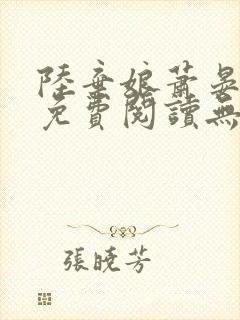 陸棄娘蕭晏
免費閱讀無
張曉芳